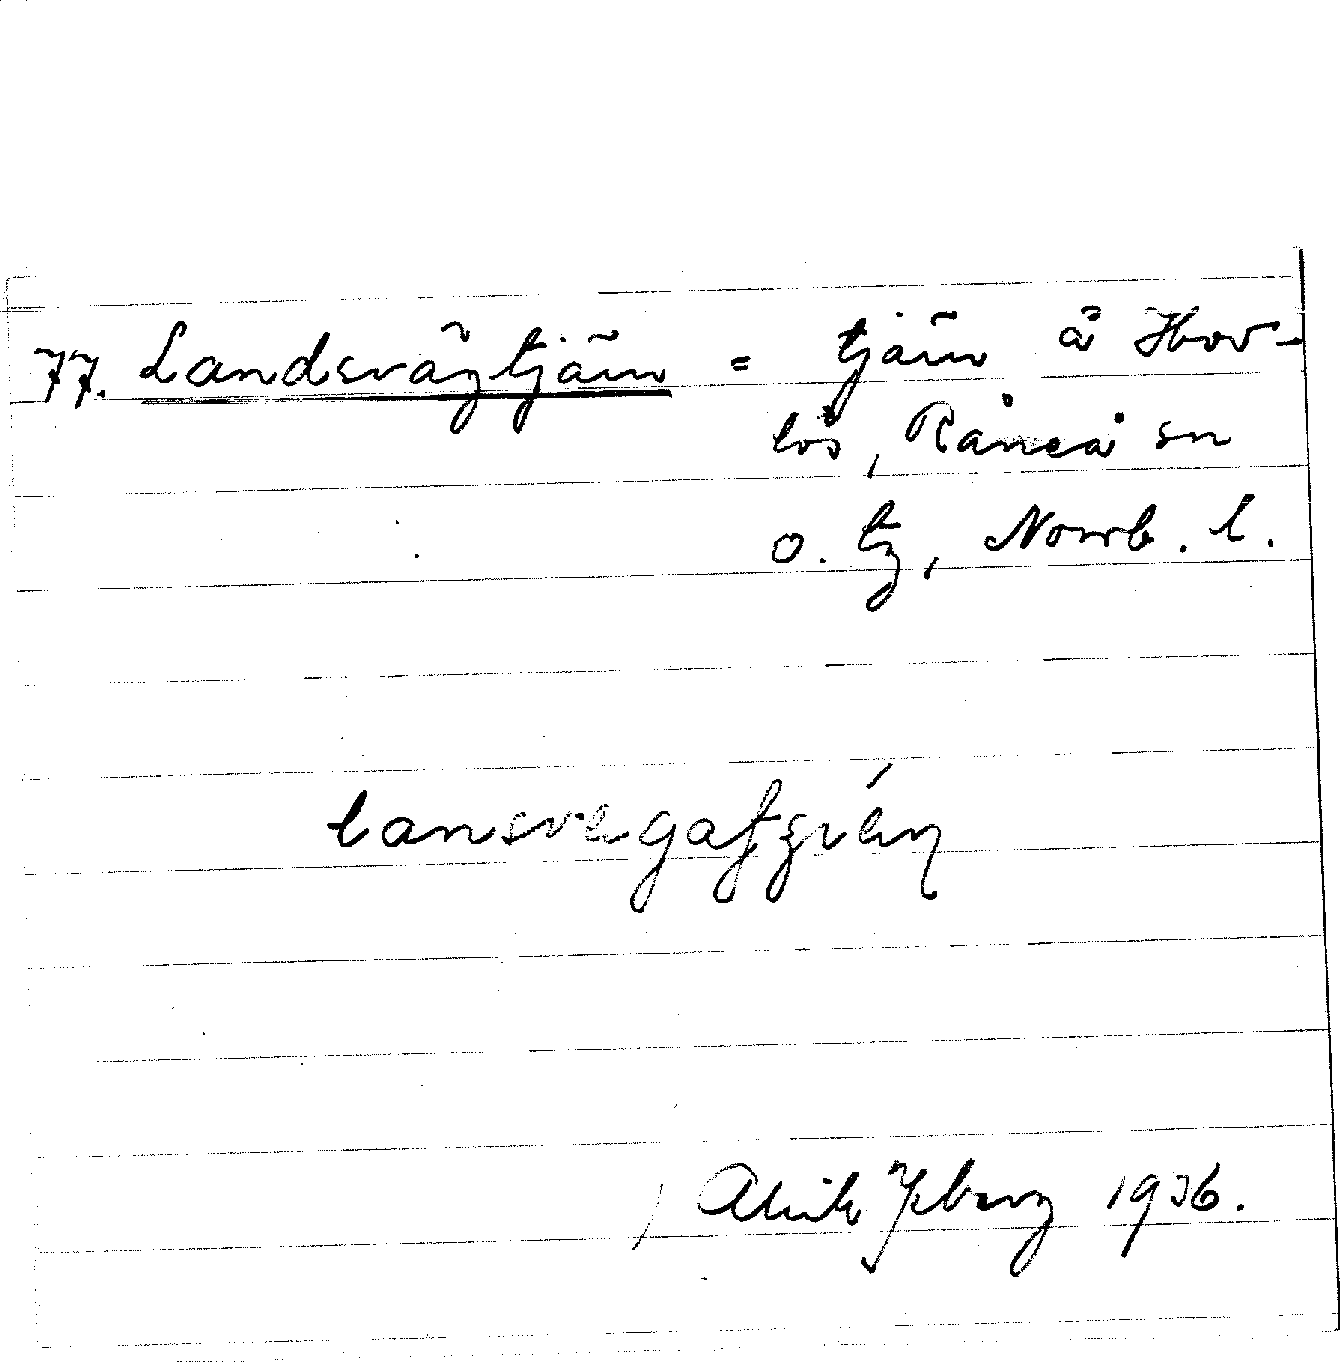 77. Landsvägtjärn = tjärn å Hov-
lös, Råneå sn
o. tg, Norrb. l.
lansvegatjen
Ahrik Ysberg 1936.